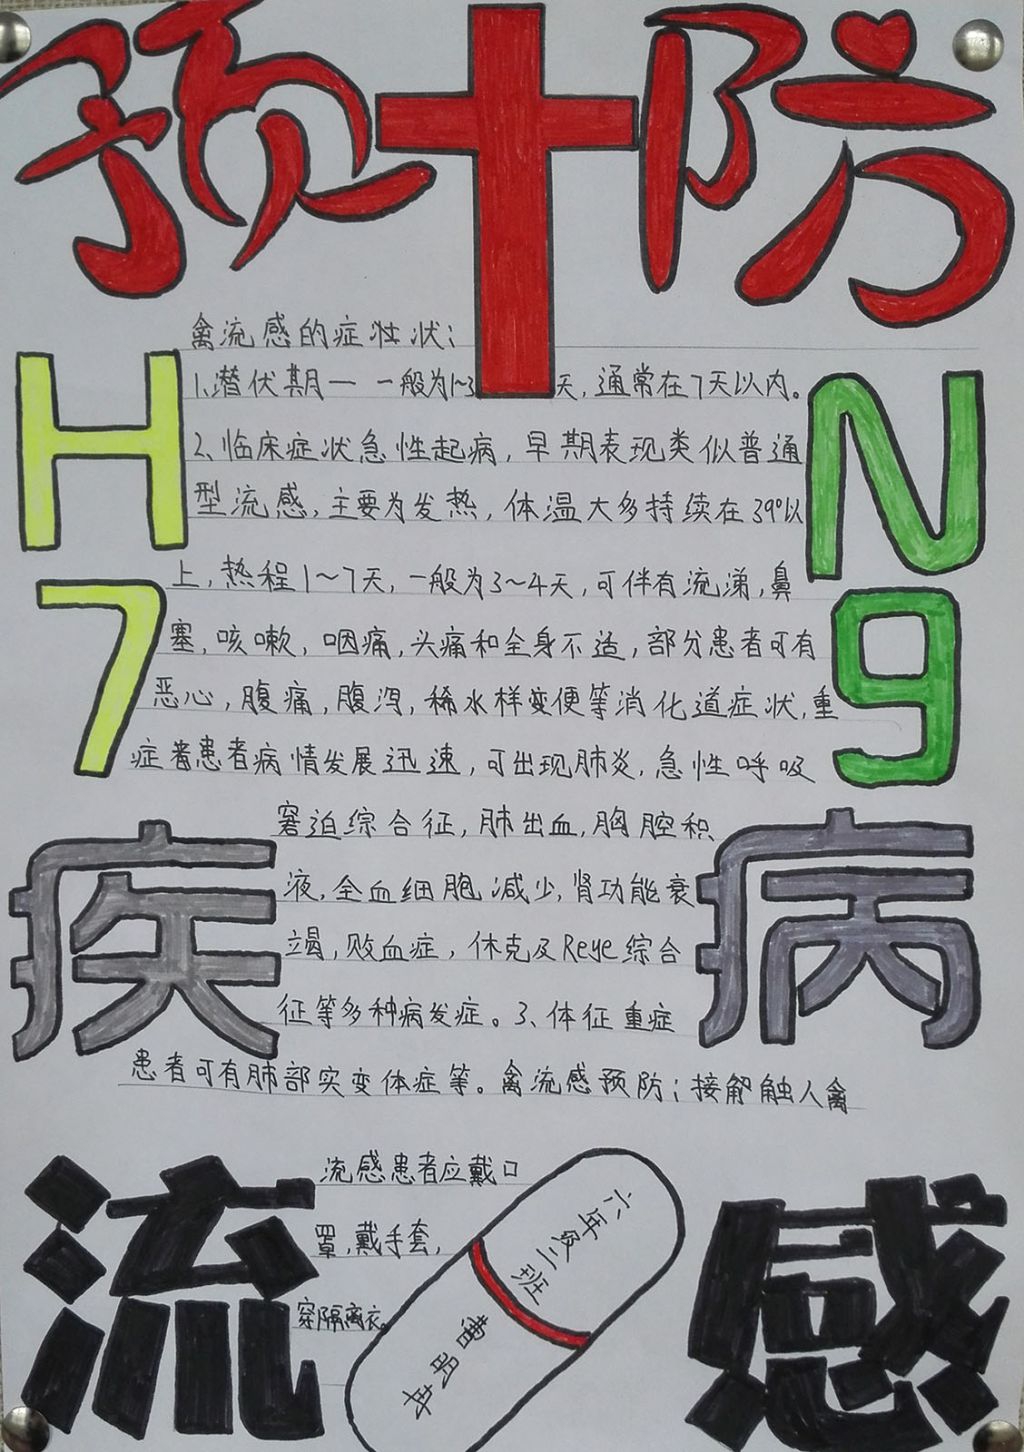 预防
禽流感的症壮状:
1、潜伏期一 一般为1~3天,通常在7天以内。
H N
2、临床症状急性起病,早期表现类似普通
型流感,主要为发热,体温大多持续在39°以
上,热程1~7天,一般为3~4天,可伴有流涕,鼻
7 9
塞,咳嗽,咽痛,头痛和全身不适,部分患者可有
恶心,腹痛,腹泻,稀水样变便等消化道症状,重
症患者病情发展迅速,可出现肺炎,急性呼吸
窘迫综合征,肺出血,胸腔积
疾 病
液,全血细胞减少,肾功能衰
竭,败血症,休克及Reye综合
征等多种病发症。3、体征重症
患者可有肺部实变体症等。禽流感预防;接触人禽
流感患者应戴口
流 感
罩,戴手套,
穿隔离衣。
六年级二班